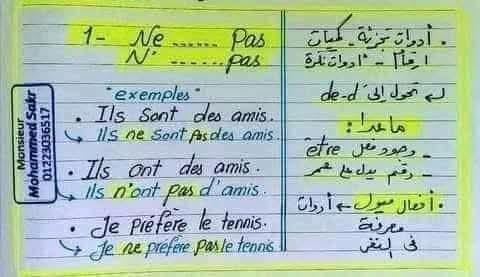 1- Ne ...... pas
N' ...... pas
"exemples"
• Ils sont des amis.
Ils ne sont pas des amis.
• Ils ont des amis.
ils n'ont pas d'amis.
• Je préfère le tennis.
Je ne préfère pas le tennis
Monsieur
Mohammed Sakr
01223036517
. أدوات تجزئة - كميات
أرقام - أدوات نكرة
تحول إلى de-d'
ماعدا:
- وجود فعل être
- رقم يدل على عمر
. أفعال ميول ← أدوات
معرفة
في النفى